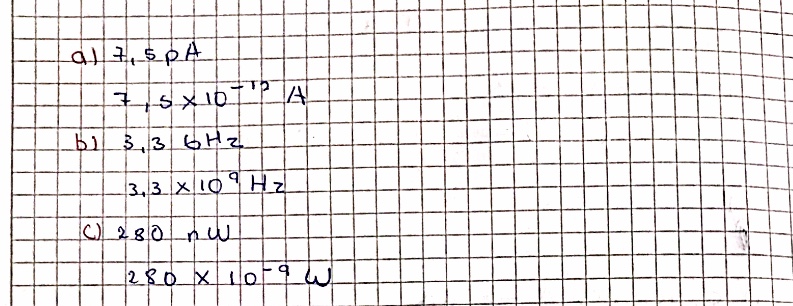 a) 7,5 pA
7,5 × 10⁻¹² A
b) 3,3 GHz
3,3 × 10⁹ Hz
c) 280 nW
280 × 10⁻⁹ W